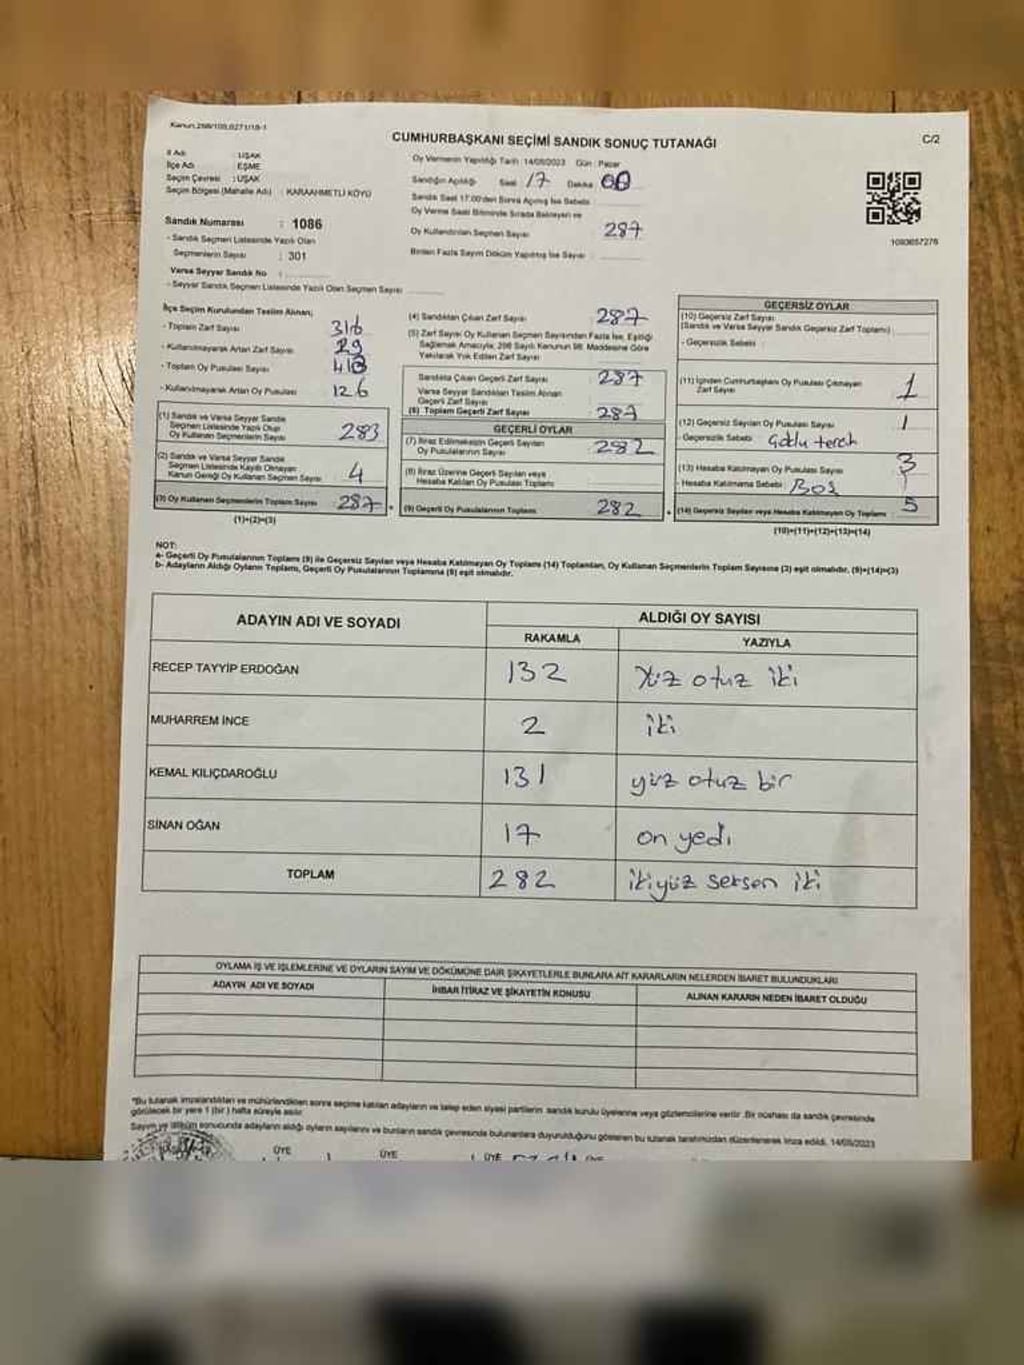 Kanun.298/105,6271/18-1
CUMHURBAŞKANI SEÇİMİ SANDIK SONUÇ TUTANAĞI
C/2
İl Adı : UŞAK
İlçe Adı : EŞME
Seçim Çevresi : UŞAK
Seçim Bölgesi (Mahalle Adı) : KARAAHMETLİ KÖYÜ
Sandık Numarası : 1086
- Sandık Seçmen Listesinde Yazılı Olan
Seçmenlerin Sayısı : 301
Varsa Seyyar Sandık No :
- Seyyar Sandık Seçmen Listesinde Yazılı Olan Seçmen Sayısı
Oy Vermenin Yapıldığı Tarih : 14/05/2023 Gün : Pazar
Sandığın Açıldığı Saat 17 Dakika 00
Sandık Saat 17:00'den Sonra Açılmış İse Sebebi
Oy Verme Saati Bitiminde Sırada Bekleyen ve
Oy Kullandırılan Seçmen Sayısı 287
Birden Fazla Sayım Döküm Yapılmış İse Sayısı :
1093657276
İlçe Seçim Kurulundan Teslim Alınan;
- Toplam Zarf Sayısı 316
- Kullanılmayarak Artan Zarf Sayısı 29
- Toplam Oy Pusulası Sayısı 413
- Kullanılmayarak Artan Oy Pusulası 126
(1) Sandık ve Varsa Seyyar Sandık
Seçmen Listesinde Yazılı Olup
Oy Kullanan Seçmenlerin Sayısı 283
(2) Sandık ve Varsa Seyyar Sandık
Seçmen Listesinde Kayıtlı Olmayan
Kanun Gereği Oy Kullanan Seçmen Sayısı 4
(3) Oy Kullanan Seçmenlerin Toplam Sayısı 287
(1)+(2)=(3)
(4) Sandıktan Çıkan Zarf Sayısı 287
(5) Zarf Sayısı Oy Kullanan Seçmen Sayısından Fazla İse, Eşitliği
Sağlamak Amacıyla, 298 Sayılı Kanunun 98. Maddesine Göre
Yakılarak Yok Edilen Zarf Sayısı
Sandıkta Çıkan Geçerli Zarf Sayısı 287
Varsa Seyyar Sandıktan Teslim Alınan
Geçerli Zarf Sayısı
(6) Toplam Geçerli Zarf Sayısı 287
GEÇERLİ OYLAR
(7) İtiraz Edilmeksizin Geçerli Sayılan
Oy Pusulalarının Sayısı 282
(8) İtiraz Üzerine Geçerli Sayılan veya
Hesaba Katılan Oy Pusulası Toplamı
(9) Geçerli Oy Pusulalarının Toplamı 282
GEÇERSİZ OYLAR
(10) Geçersiz Zarf Sayısı
(Sandık ve Varsa Seyyar Sandık Geçersiz Zarf Toplamı)
- Geçersizlik Sebebi :
(11) İçinden Cumhurbaşkanı Oy Pusulası Çıkmayan
Zarf Sayısı 1
(12) Geçersiz Sayılan Oy Pusulası Sayısı 1
- Geçersizlik Sebebi
(13) Hesaba Katılmayan Oy Pusulası Sayısı 3
- Hesaba Katılmama Sebebi : Boş
(14) Geçersiz Sayılan veya Hesaba Katılmayan Oy Toplamı 5
(10)+(11)+(12)+(13)=(14)
NOT:
a- Geçerli Oy Pusulalarının Toplamı (9) ile Geçersiz Sayılan veya Hesaba Katılmayan Oy Toplamı (14) Toplamları, Oy Kullanan Seçmenlerin Toplam Sayısına (3) eşit olmalıdır, (9)+(14)=(3)
b- Adayların Aldığı Oyların Toplamı, Geçerli Oy Pusulalarının Toplamına (9) eşit olmalıdır.
ADAYIN ADI VE SOYADI ALDIĞI OY SAYISI
RAKAMLA YAZIYLA
RECEP TAYYİP ERDOĞAN 132 Yüz otuz iki
MUHARREM İNCE 2 iki
KEMAL KILIÇDAROĞLU 131 yüz otuz bir
SİNAN OĞAN 17 on yedi
TOPLAM 282 ikiyüz seksen iki
OYLAMA İŞ VE İŞLEMLERİNE VE OYLARIN SAYIM VE DÖKÜMÜNE DAİR ŞİKAYETLERLE BUNLARA AİT KARARLARIN NELERDEN İBARET BULUNDUKLARI
ADAYIN ADI VE SOYADI İHBAR İTİRAZ VE ŞİKAYETİN KONUSU ALINAN KARARIN NEDEN İBARET OLDUĞU
*Bu tutanak imzalandıktan ve mühürlendikten sonra seçime katılan adayların ve talep eden siyasi partilerin sandık kurulu üyelerine veya gözlemcilerine verilir. Bir nüshası da sandık çevresinde
görülecek bir yere 1 (bir) hafta süreyle asılır.
Sayım ve döküm sonucunda adayların aldığı oyların sayılarını ve bunların sandık çevresinde bulunanlara duyurulduğunu gösteren bu tutanak tarafımızdan düzenlenerek imza edildi. 14/05/2023
ÜYE ÜYE ÜYE ÜYE